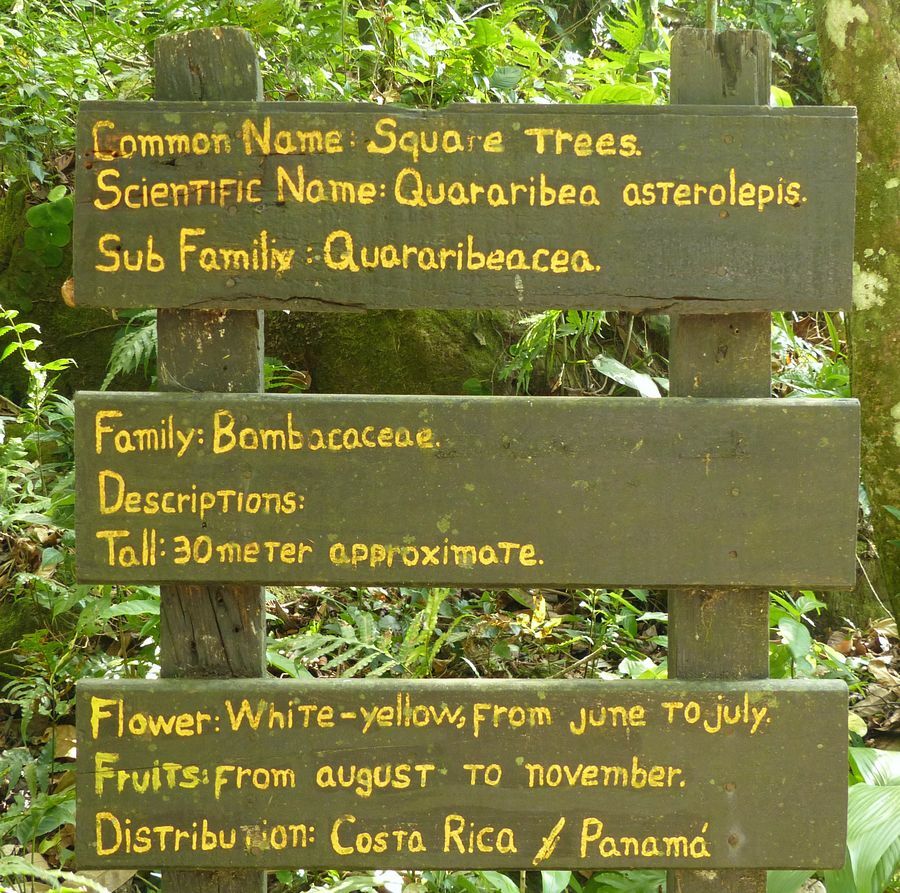 Common Name: Square Trees.
Scientific Name: Quararibea asterolepis.
Sub Familiy: Quararibeacea.
Family: Bombacaceae.
Descriptions:
Tall: 30 meter approximate.
Flower: White-yellow, from june to july.
Fruits: from august to november.
Distribution: Costa Rica / Panamá